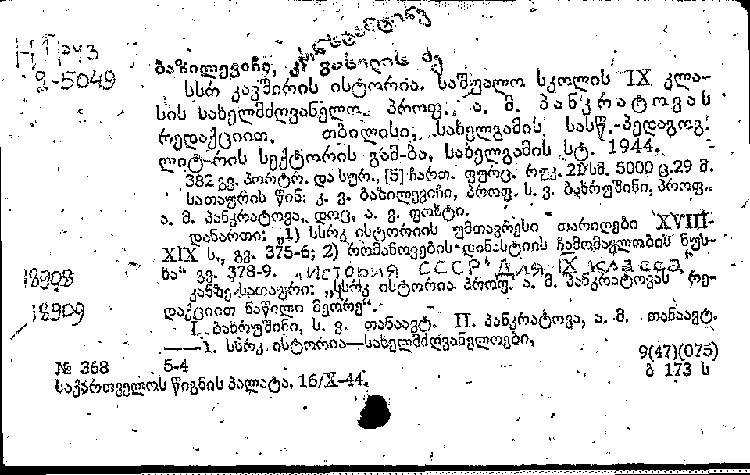 კონსტანტინე
Н Груз
2-5049
ბაზილევიჩი, კ. ვასილის ძე
სსრ კავშირის ისტორია. საშუალო სკოლის IX კლა-
სის სახელმძღვანელო. პროფ. ა. მ. პანკრატოვას
რედაქციით. თბილისი, სახელგამის სასწ.-პედაგოგ.
ლიტ-რის სექტორის გამ-ბა, სახელგამის სტ. 1944.
382 გვ. პორტრ. და სურ., [5] ჩართ. ფურც. რუკ. 20 სმ. 5000 ც. 29 მ.
სათაურის წინ: კ. ვ. ბაზილევიჩი, პროფ. ს. ვ. ბახრუშინი, პროფ.
ა. მ. პანკრატოვა, დოც. ა. ვ. ფოხტი.
დანართი: „1) სსრკ ისტორიის უმთავრესი თარიღები XVIII-
XIX ს., გვ. 375-6; 2) რომანოვების დინასტიის ჩამომავლობის ნუს-
ხა" გვ. 378-9. „История СССР для IX класса"
18908
კანზე სათაური: „სსრკ ისტორია პროფ. ა. მ. პანკრატოვას რე-
18909
დაქციით ნაწილი მეორე".
I. ბახრუშინი, ს. ვ. თანაავტ. II. პანკრატოვა, ა. მ. თანაავტ.
——1. სსრკ ისტორია—სახელმძღვანელოები.
9(47)(075)
№ 368 5-4
ბ 173 ს
საქართველოს წიგნის პალატა. 16/X-44.